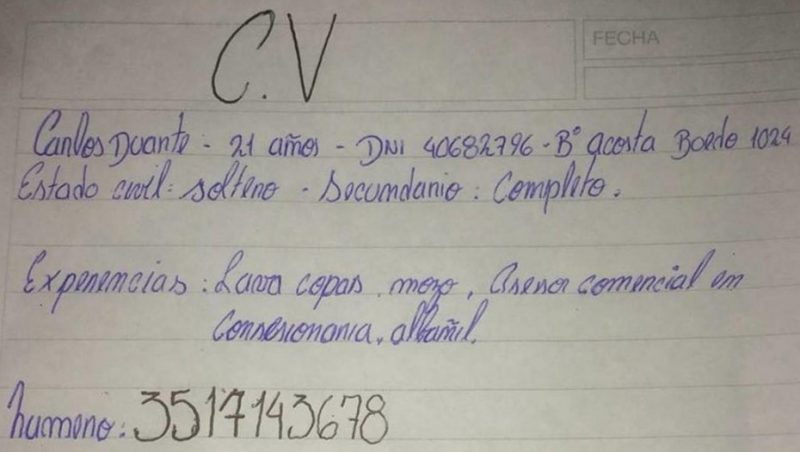 C.V
FECHA
Carlos Duarte - 21 años - DNI 40682796 - B° acosta Boedo 1024
Estado civil: soltero - Secundario: Completo.
Experiencias: Lava copas, mozo, Asesor comercial en
Consesionaria, albañil.
numero: 3517143678